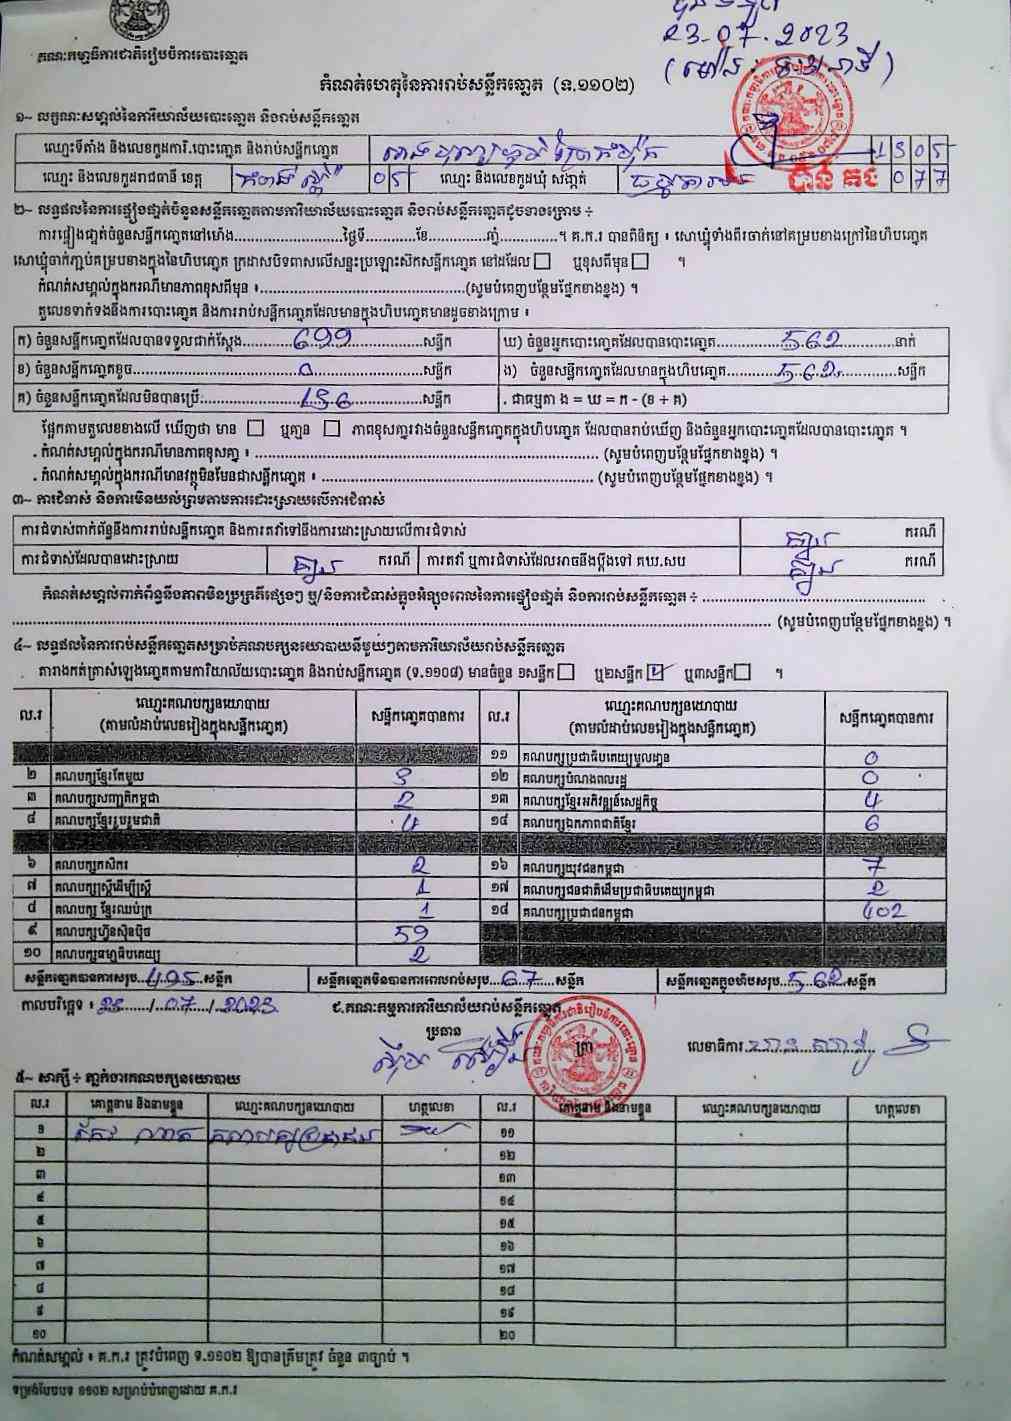 23.07.2023
គណៈកម្មាធិការជាតិរៀបចំការបោះឆ្នោត
កំណត់ហេតុនៃការរាប់សន្លឹកឆ្នោត (ទ.១១០២)
១~ លក្ខណៈសម្គាល់នៃការិយាល័យបោះឆ្នោត និងរាប់សន្លឹកឆ្នោត
ឈ្មោះទីតាំង និងលេខកូដការិ.បោះឆ្នោត និងរាប់សន្លឹកឆ្នោត 1305
ឈ្មោះ និងលេខកូដរាជធានី ខេត្ត កំពង់ស្ពឺ 05 ឈ្មោះ និងលេខកូដឃុំ សង្កាត់ 077
២~ លទ្ធផលនៃការផ្ទៀងផ្ទាត់ចំនួនសន្លឹកឆ្នោតតាមការិយាល័យបោះឆ្នោត និងរាប់សន្លឹកឆ្នោតដូចខាងក្រោម ÷
ការផ្ទៀងផ្ទាត់ចំនួនសន្លឹកឆ្នោតនៅម៉ោង..........ថ្ងៃទី..........ខែ..........ឆ្នាំ.......... ។ គ.ក.រ បានពិនិត្យ ៖ សោឃ្នុំទាំងពីរចាក់នៅគម្របខាងក្រៅនៃហិបឆ្នោត
សោឃ្នុំចាក់ភ្ជាប់គម្របខាងក្នុងនៃហិបឆ្នោត ក្រដាសបិទពាសលើសន្ទះប្រឡោះសឹកសន្លឹកឆ្នោត នៅដដែល ☐ ឬខុសពីមុន ☐ ។
កំណត់សម្គាល់ក្នុងករណីមានភាពខុសពីមុន ៖..........(សូមបំពេញបន្ថែមផ្នែកខាងខ្នង) ។
តួលេខទាក់ទងនឹងការបោះឆ្នោត និងការរាប់សន្លឹកឆ្នោតដែលមានក្នុងហិបឆ្នោតមានដូចខាងក្រោម ៖
ក) ចំនួនសន្លឹកឆ្នោតដែលបានទទួលជាក់ស្តែង 699 សន្លឹក ឃ) ចំនួនអ្នកបោះឆ្នោតដែលបានបោះឆ្នោត 562 នាក់
ខ) ចំនួនសន្លឹកឆ្នោតខូច 0 សន្លឹក ង) ចំនួនសន្លឹកឆ្នោតដែលមានក្នុងហិបឆ្នោត 562 សន្លឹក
គ) ចំនួនសន្លឹកឆ្នោតដែលមិនបានប្រើ សន្លឹក . ជាធម្មតា ង = ឃ = ក - (ខ + គ)
ផ្អែកតាមតួលេខខាងលើ ឃើញថា មាន ☐ ឬគ្មាន ☐ ភាពខុសគ្នារវាងចំនួនសន្លឹកឆ្នោតក្នុងហិបឆ្នោត ដែលបានរាប់ឃើញ និងចំនួនអ្នកបោះឆ្នោតដែលបានបោះឆ្នោត ។
. កំណត់សម្គាល់ក្នុងករណីមានភាពខុសគ្នា ៖ .......... (សូមបំពេញបន្ថែមផ្នែកខាងខ្នង) ។
. កំណត់សម្គាល់ក្នុងករណីមានវត្ថុមិនមែនជាសន្លឹកឆ្នោត ៖ .......... (សូមបំពេញបន្ថែមផ្នែកខាងខ្នង) ។
៣~ ការជំទាស់ និងការមិនយល់ព្រមតាមការដោះស្រាយលើការជំទាស់
ការជំទាស់ពាក់ព័ន្ធនឹងការរាប់សន្លឹកឆ្នោត និងការតវ៉ាទៅនឹងការដោះស្រាយលើការជំទាស់ គ្មាន ករណី
ការជំទាស់ដែលបានដោះស្រាយ គ្មាន ករណី ការតវ៉ា ឬការជំទាស់ដែលអាចនឹងប្តឹងទៅ គឃ.សប គ្មាន ករណី
កំណត់សម្គាល់ពាក់ព័ន្ធនឹងភាពមិនប្រក្រតីផ្សេងៗ ឬ/និងការជំទាស់ក្នុងអំឡុងពេលនៃការផ្ទៀងផ្ទាត់ និងការរាប់សន្លឹកឆ្នោត ÷ ..........
.......... (សូមបំពេញបន្ថែមផ្នែកខាងខ្នង) ។
៤~ លទ្ធផលនៃការរាប់សន្លឹកឆ្នោតសម្រាប់គណបក្សនយោបាយនីមួយៗតាមការិយាល័យរាប់សន្លឹកឆ្នោត
តារាងកត់ត្រាសំឡេងឆ្នោតតាមការិយាល័យបោះឆ្នោត និងរាប់សន្លឹកឆ្នោត (ទ.១១០៨) មានចំនួន ១សន្លឹក ☐ ឬ២សន្លឹក ☑ ឬ៣សន្លឹក ☐ ។
ល.រ ឈ្មោះគណបក្សនយោបាយ (តាមលំដាប់លេខរៀងក្នុងសន្លឹកឆ្នោត) សន្លឹកឆ្នោតបានការ ល.រ ឈ្មោះគណបក្សនយោបាយ (តាមលំដាប់លេខរៀងក្នុងសន្លឹកឆ្នោត) សន្លឹកឆ្នោតបានការ
១១ គណបក្សប្រជាធិបតេយ្យមូលដ្ឋាន 0
២ គណបក្សខ្មែរតែមួយ 3 ១២ គណបក្សបំណងពលរដ្ឋ 0
៣ គណបក្សសញ្ជាតិកម្ពុជា 2 ១៣ គណបក្សខ្មែរអភិវឌ្ឍន៍សេដ្ឋកិច្ច 4
៤ គណបក្សខ្មែររួបរួមជាតិ 4 ១៤ គណបក្សឯកភាពជាតិខ្មែរ 6
៦ គណបក្សកសិករ 2 ១៦ គណបក្សយុវជនកម្ពុជា 7
៧ គណបក្សស្ត្រីដើម្បីស្ត្រី 1 ១៧ គណបក្សជនជាតិដើមប្រជាធិបតេយ្យកម្ពុជា 2
៨ គណបក្ស ខ្មែរឈប់ក្រ 1 ១៨ គណបក្សប្រជាជនកម្ពុជា 402
៩ គណបក្សហ្វ៊ុនស៊ិនប៉ិច 59
១០ គណបក្សធម្មាធិបតេយ្យ 2
សន្លឹកឆ្នោតបានការសរុប 495 សន្លឹក សន្លឹកឆ្នោតមិនបានការពេលរាប់សរុប 67 សន្លឹក សន្លឹកឆ្នោតក្នុងហិបសរុប 562 សន្លឹក
កាលបរិច្ឆេទ ៖ 23/07/2023 ជ.គណៈកម្មការការិយាល័យរាប់សន្លឹកឆ្នោត
ប្រធាន
លេខាធិការ
៥~ សាក្សី ÷ ភ្នាក់ងារគណបក្សនយោបាយ
ល.រ គោត្តនាម និងនាមខ្លួន ឈ្មោះគណបក្សនយោបាយ ហត្ថលេខា ល.រ គោត្តនាម និងនាមខ្លួន ឈ្មោះគណបក្សនយោបាយ ហត្ថលេខា
១ គណបក្សប្រជាជន ១១
២ ១២
៣ ១៣
៤ ១៤
៥ ១៥
៦ ១៦
៧ ១៧
៨ ១៨
៩ ១៩
១០ ២០
កំណត់សម្គាល់ ៖ គ.ក.រ ត្រូវបំពេញ ទ.១១០២ ឱ្យបានត្រឹមត្រូវ ចំនួន ៣ច្បាប់ ។
ទម្រង់បែបបទ ១១០២ សម្រាប់បំពេញដោយ គ.ក.រ